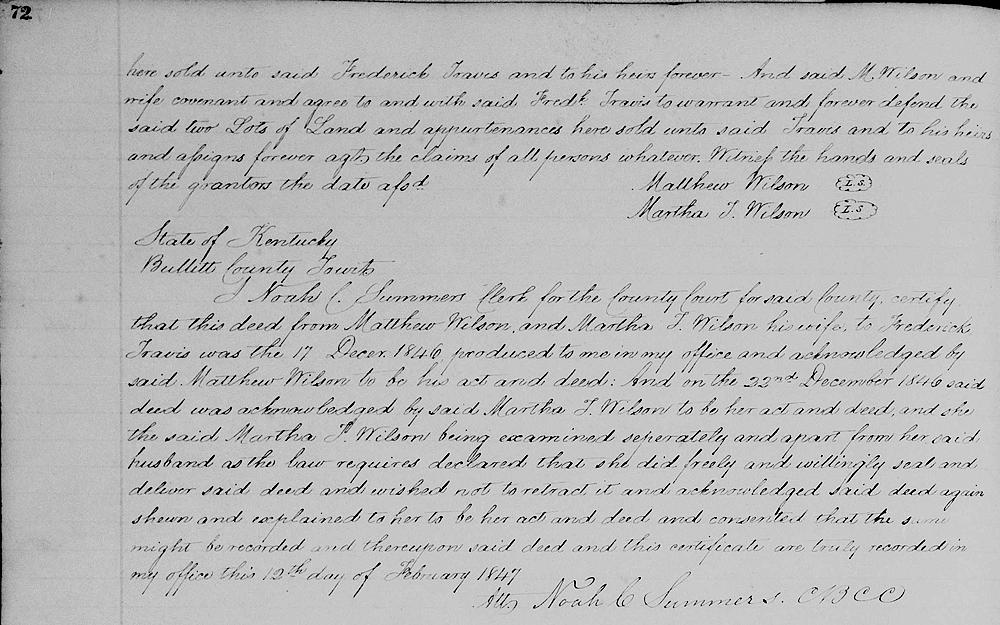 72
here sold unto said Frederick Travis and to his heirs forever - And said M. Wilson and
wife covenant and agree to and with said Fredk. Travis to warrant and forever defend the
said two Lots of Land and appurtenances here sold unto said Travis and to his heirs
and assigns forever agts the claims of all persons whatever. Witness the hands and seals
of the grantors the date afsd
Matthew Wilson L.S.
Martha T. Wilson L.S.
State of Kentucky
Bullitt County Towit
I Noah C. Summers Clerk for the County Court for said County, certify
that this deed from Matthew Wilson, and Martha T. Wilson his wife, to Frederick
Travis was the 17 Decer. 1846, produced to me in my office and acknowledged by
said Matthew Wilson to be his act and deed: And on the 22nd December 1846 said
deed was acknowledged by said Martha T. Wilson to be her act and deed, and she
the said Martha T. Wilson being examined seperately and apart from her said
husband as the law requires declared that she did freely and willingly seal and
deliver said deed and wished not to retract it and acknowledged said deed again
shewn and explained to her to be her act and deed and consented that the same
might be recorded and thereupon said deed and this certificate are truly recorded in
my office this 12th day of February 1847
Att Noah C Summers. C B C C